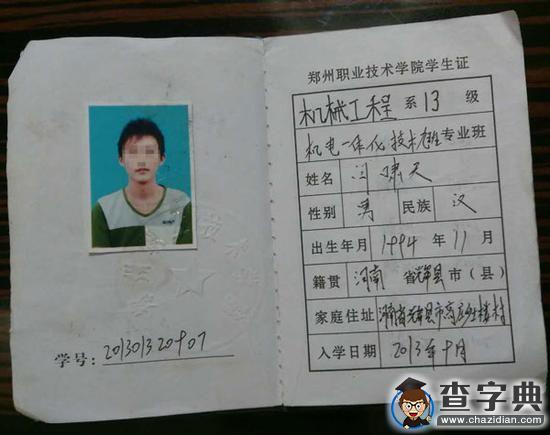 学号：201301320907
郑州职业技术学院学生证
机械工程系13级
机电一体化技术 专业班
姓名 闫啸天
性别 男 民族 汉
出生年月 1994年11月
籍贯 河南省辉县市（县）
家庭住址 河南省辉县市高庄乡 楼村
入学日期 2013年9月
查字典
www.chazidian.com